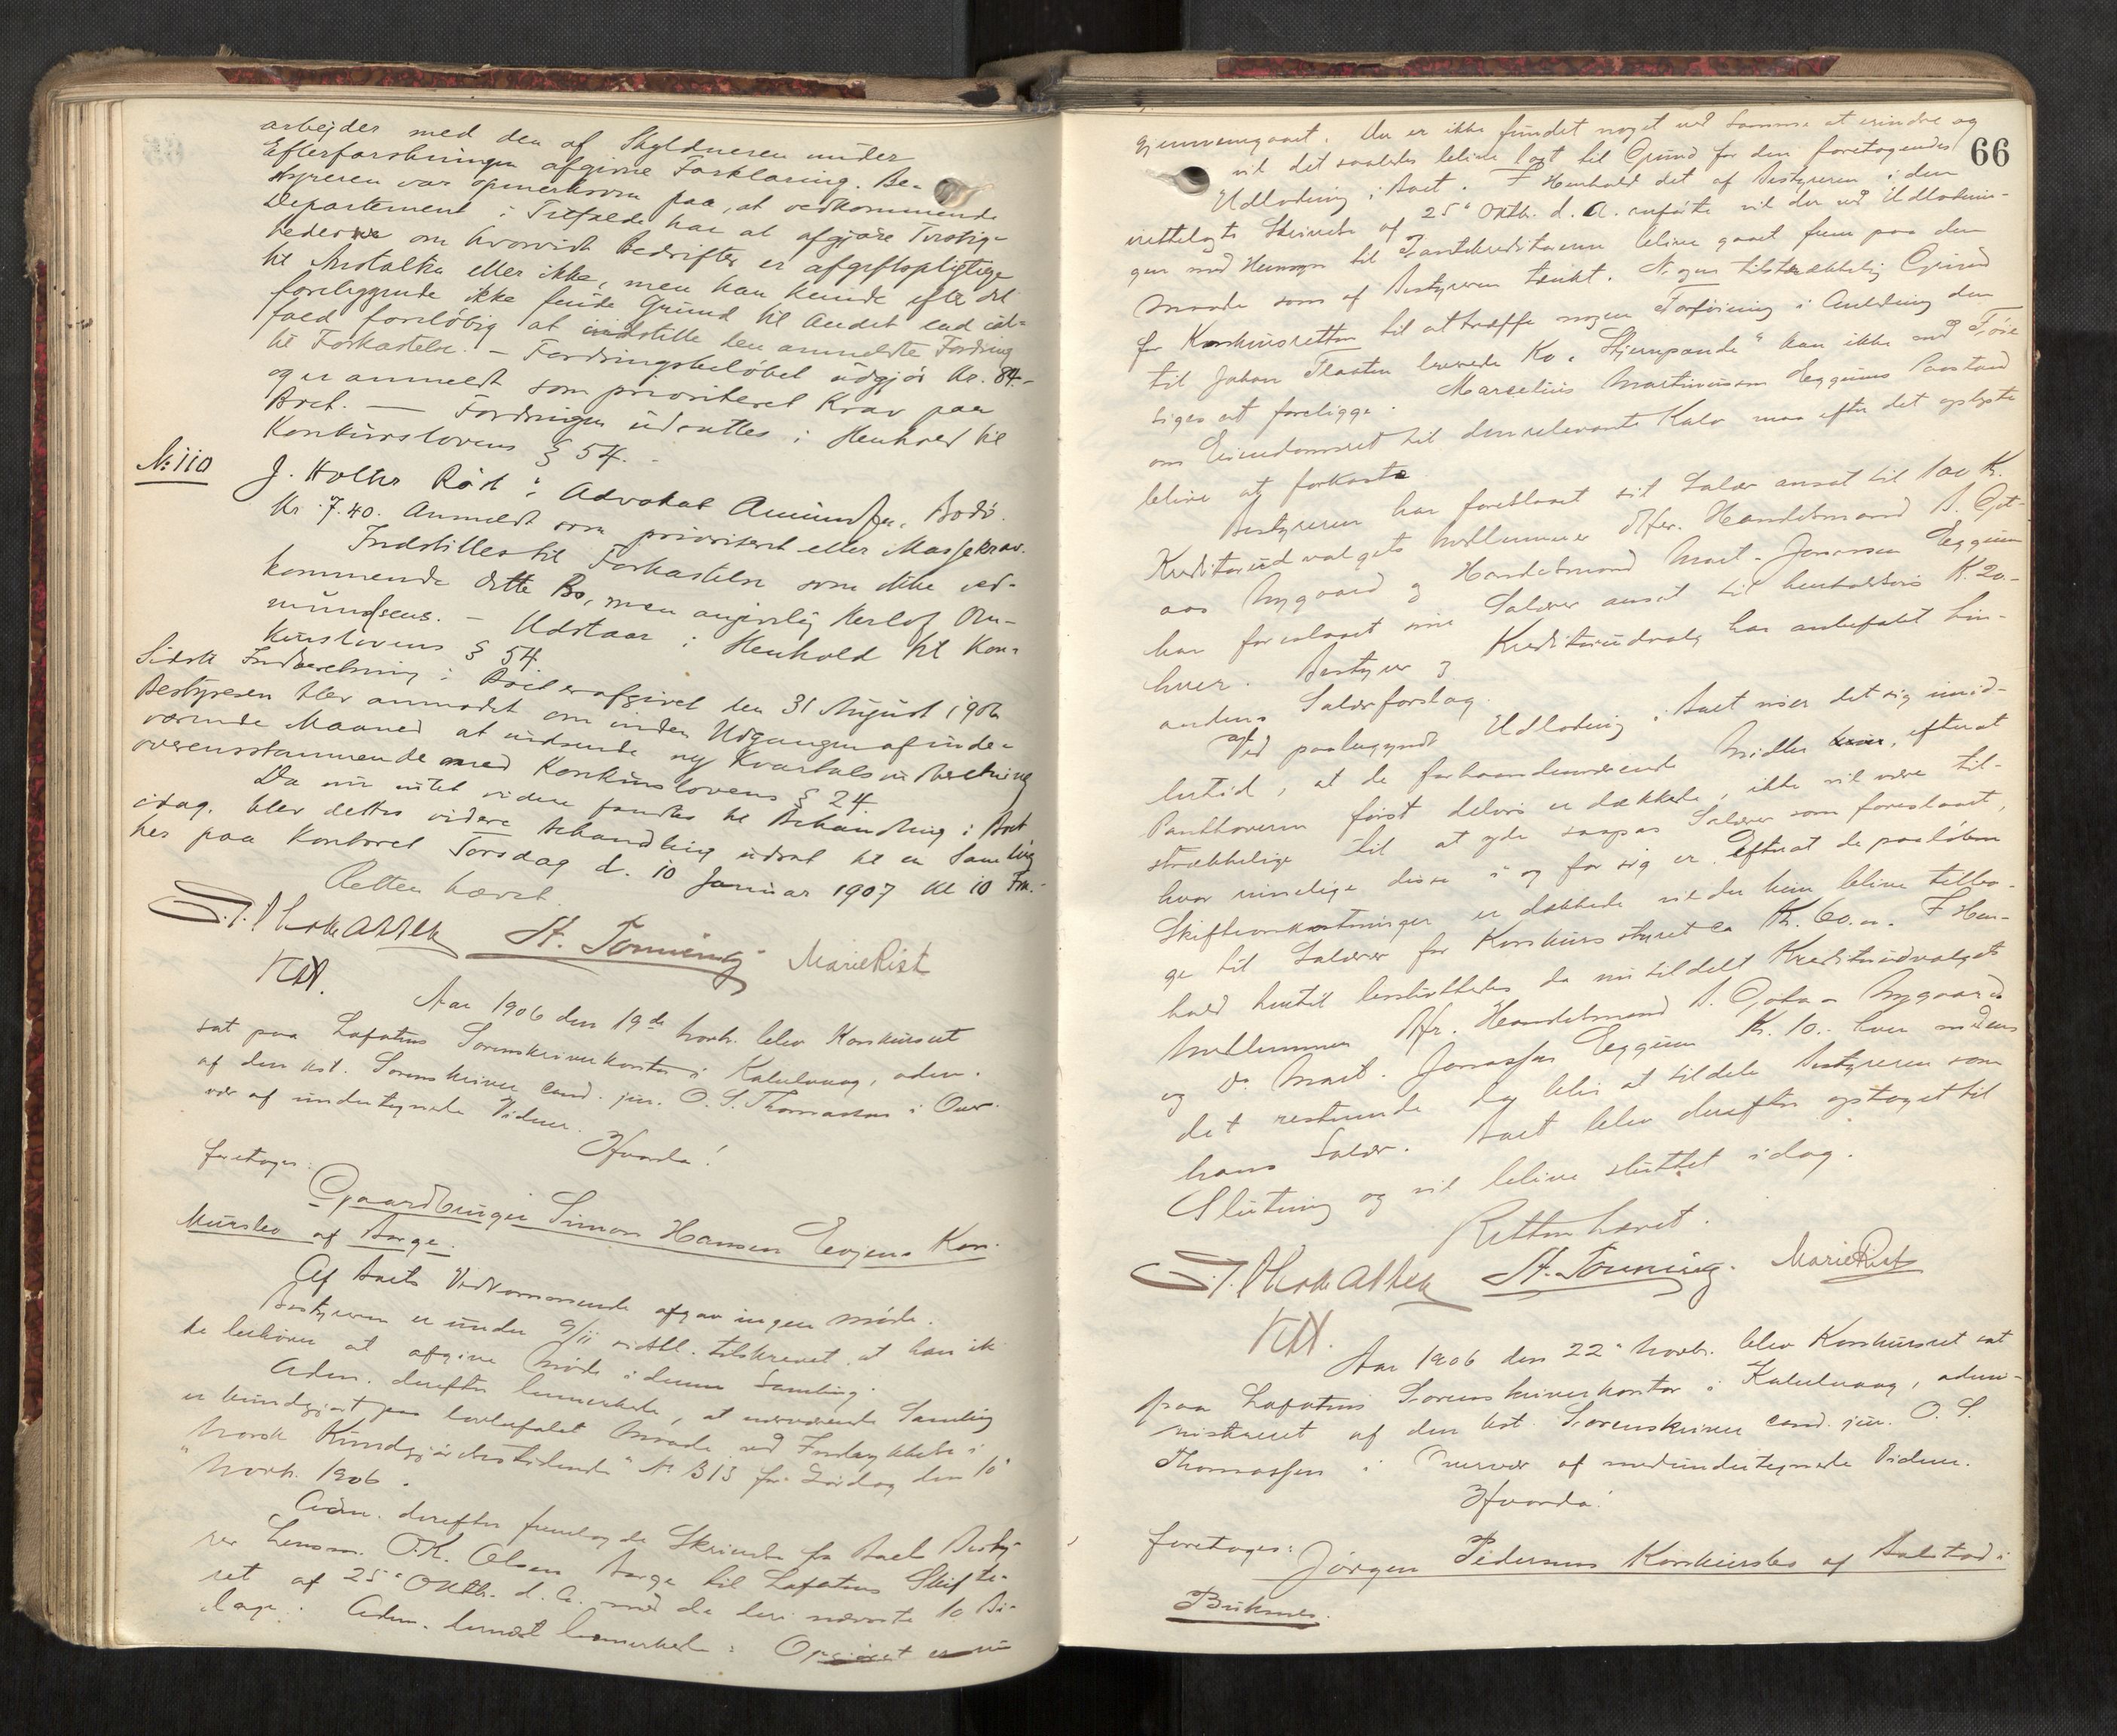 arbejdes med den af Skyldneren under
Efterforskningen afgivne Forklaring. Be-
styreren var opmerksom paa, at vedkommende
Departement i Tilfælde har at afgjøre Tvistig-
hederne om hvorvidt Bedrifter er afgiftspligtige
til Anstalten eller ikke, men han kunde efter det
foreliggende ikke finde Grund til andet end ial-
fald foreløbig at indstille den anmeldte Fordring
til Forkastelse. — Fordringsbeløbet udgjør Kr. 84-
og er anmeldt som prioriteret Krav paa
Boet. — Fordringen udsattes i Henhold til
Konkurslovens § 54. -
No 110 J. Holters Rød: Advokat Amundsen, Bodø.
Kr. 7.40. Anmeldt som prioriteret eller Massekrav.
Indstilles til Forkastelse som ikke ved-
kommende dette Bo, men angivelig Herlof Am-
mundsens. — Udstaar i Henhold til Kon-
kurslovens § 54.
Sidste Indberetning i Boet er afgivet den 31 August 1906
Bestyreren blev anmodet om inden Udgangen af inde-
værende Maaned at indsende ny Kvartalsindberetning
overensstemmende med Konkurslovens § 24.
Da nu intet videre fandtes til Behandling i Boet
idag, blev dettes videre Behandling udsat til en Samling
her paa Kontoret Torsdag d. 10 Januar 1907 Kl 10 Fm.-
Retten hævet.
O. S. Thomassen St. Tonning Marie Rist
Aar 1906 den 19de Novb. blev Konkursret
sat paa Lofotens Sorenskriverkontor i Kabelvaag, adm.
af den kst. Sorenskriver cand. jur. O. S. Thomassen i Over-
vær af undertegnede Vidner.
Hvorda!
foretoges:
Gaardbruger Simon Hansen Evjens Kon-
kursbo af Borge.
Af Boets Vedkommende afgav ingen møde.
Bestyreren er under 9/11 sidstl. tilskrevet, at han ik-
ke behøver at afgive Møde i denne Samling.
Adm. derefter bemerkede, at nærværende Samling
er kundgjort paa lovbefalet Maade ved Indrykkelse i
"Norsk Kundgjørelsestidende" No 313 for Lørdag den 10'
Novb. 1906.
Adm. derefter fremlagde Skrivelse fra Boets Besty-
rer Lensm. O.K. Olsen Borge til Lofotens Skifte-
ret af 25' Oktb. d. A. med de deri nævnte 10 Bi-
lage. Adm. dernæst bemerkede: Opgjøret er nu
66
gjennemgaaet. Der er ikke fundet noget ved samme at erindre og
vil det saaledes blive lagt til Grund for den foretagendes
Udlodning i Boet. I Henhold det af Bestyreren i den
irettelagte Skrivelse af 25' Oktb. d. A. anførte vil der ved Udlodnin-
gen med Hensyn til Pantekreditorerne blive gaaet frem paa den
Maade som af Bestyreren tænkt. Nogen tilstrækkelig Grund
for Konkursretten til at træffe nogen Forføining i Anledning den
til Johan Flaaten leverede Ko "Stjernpande" kan ikke med Føie
siges at foreligge. Marcelius Martinussen Eggums Paastand
om Eiendomsret til den relevante Kalv maa efter det oplyste
blive at forkaste.
Bestyreren har foreslaaet sit Salær ansat til 100 Kr.
Kreditorudvalgets Medlemmer Hr. Handelsmand A. Gjet-
aas Mygaard og Handelsmand Mart. Jonassen Eggum
har foreslaaet sine Salærer ansat til henholdsvis Kr. 20.-
hver. Bestyrer og Kreditorudvalg har anbefalet hin-
andens Salærforslag.
Ved paabegyndt Udlodning i Boet viser det sig imid-
lertid, at de forhaandenværende Midler, efterat
Panthaveren først delvis er dækkede, ikke vil være til-
strækkelige til at yde saapas Salærer som foreslaaet,
hvor rimelige disse i og for sig er. Efterat de paaløbne
Skifteomkostninger er dækkede vil der kun blive tilba-
ge til Salærer for Konkursstyret ca Kr. 60.-. I Hen-
hold hertil besluttedes da nu tildelt Kreditorudvalgets
Medlemmer Hr. Handelsmand A. Gjetaas Mygaard
og do Mart. Jonassen Eggum Kr. 10.- hver medens
det resterende da blir at tildele Bestyreren som
hans Salær. Boet blev derefter optaget til
Slutning og vil blive sluttet idag.
Retten hævet.
O. S. Thomassen St. Tonning. Marie Rist
Aar 1906 den 22' Novb. blev Konkursret sat
paa Lofotens Sorenskriverkontor i Kabelvaag, admi-
nistreret af den kst. Sorenskriver cand. jur. O. S.
Thomassen i Overvær af medundertegnede Vidner.
Hvorda!
foretoges:
Jørgen Pedersens Konkursbo af Balstad i
Buksnes.